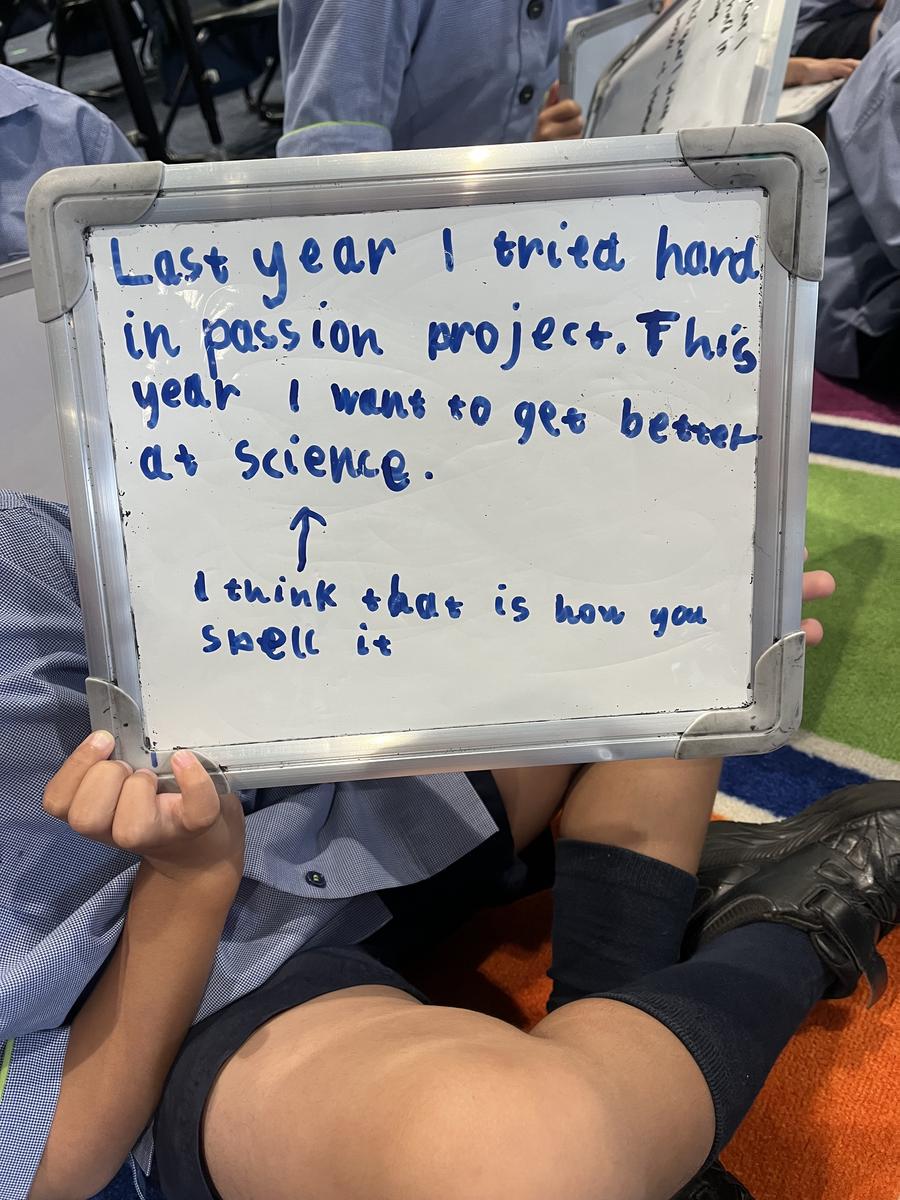 Last year I tried hard
in passion project. This
year I want to get better
at science.
↑
I think that is how you
spell it